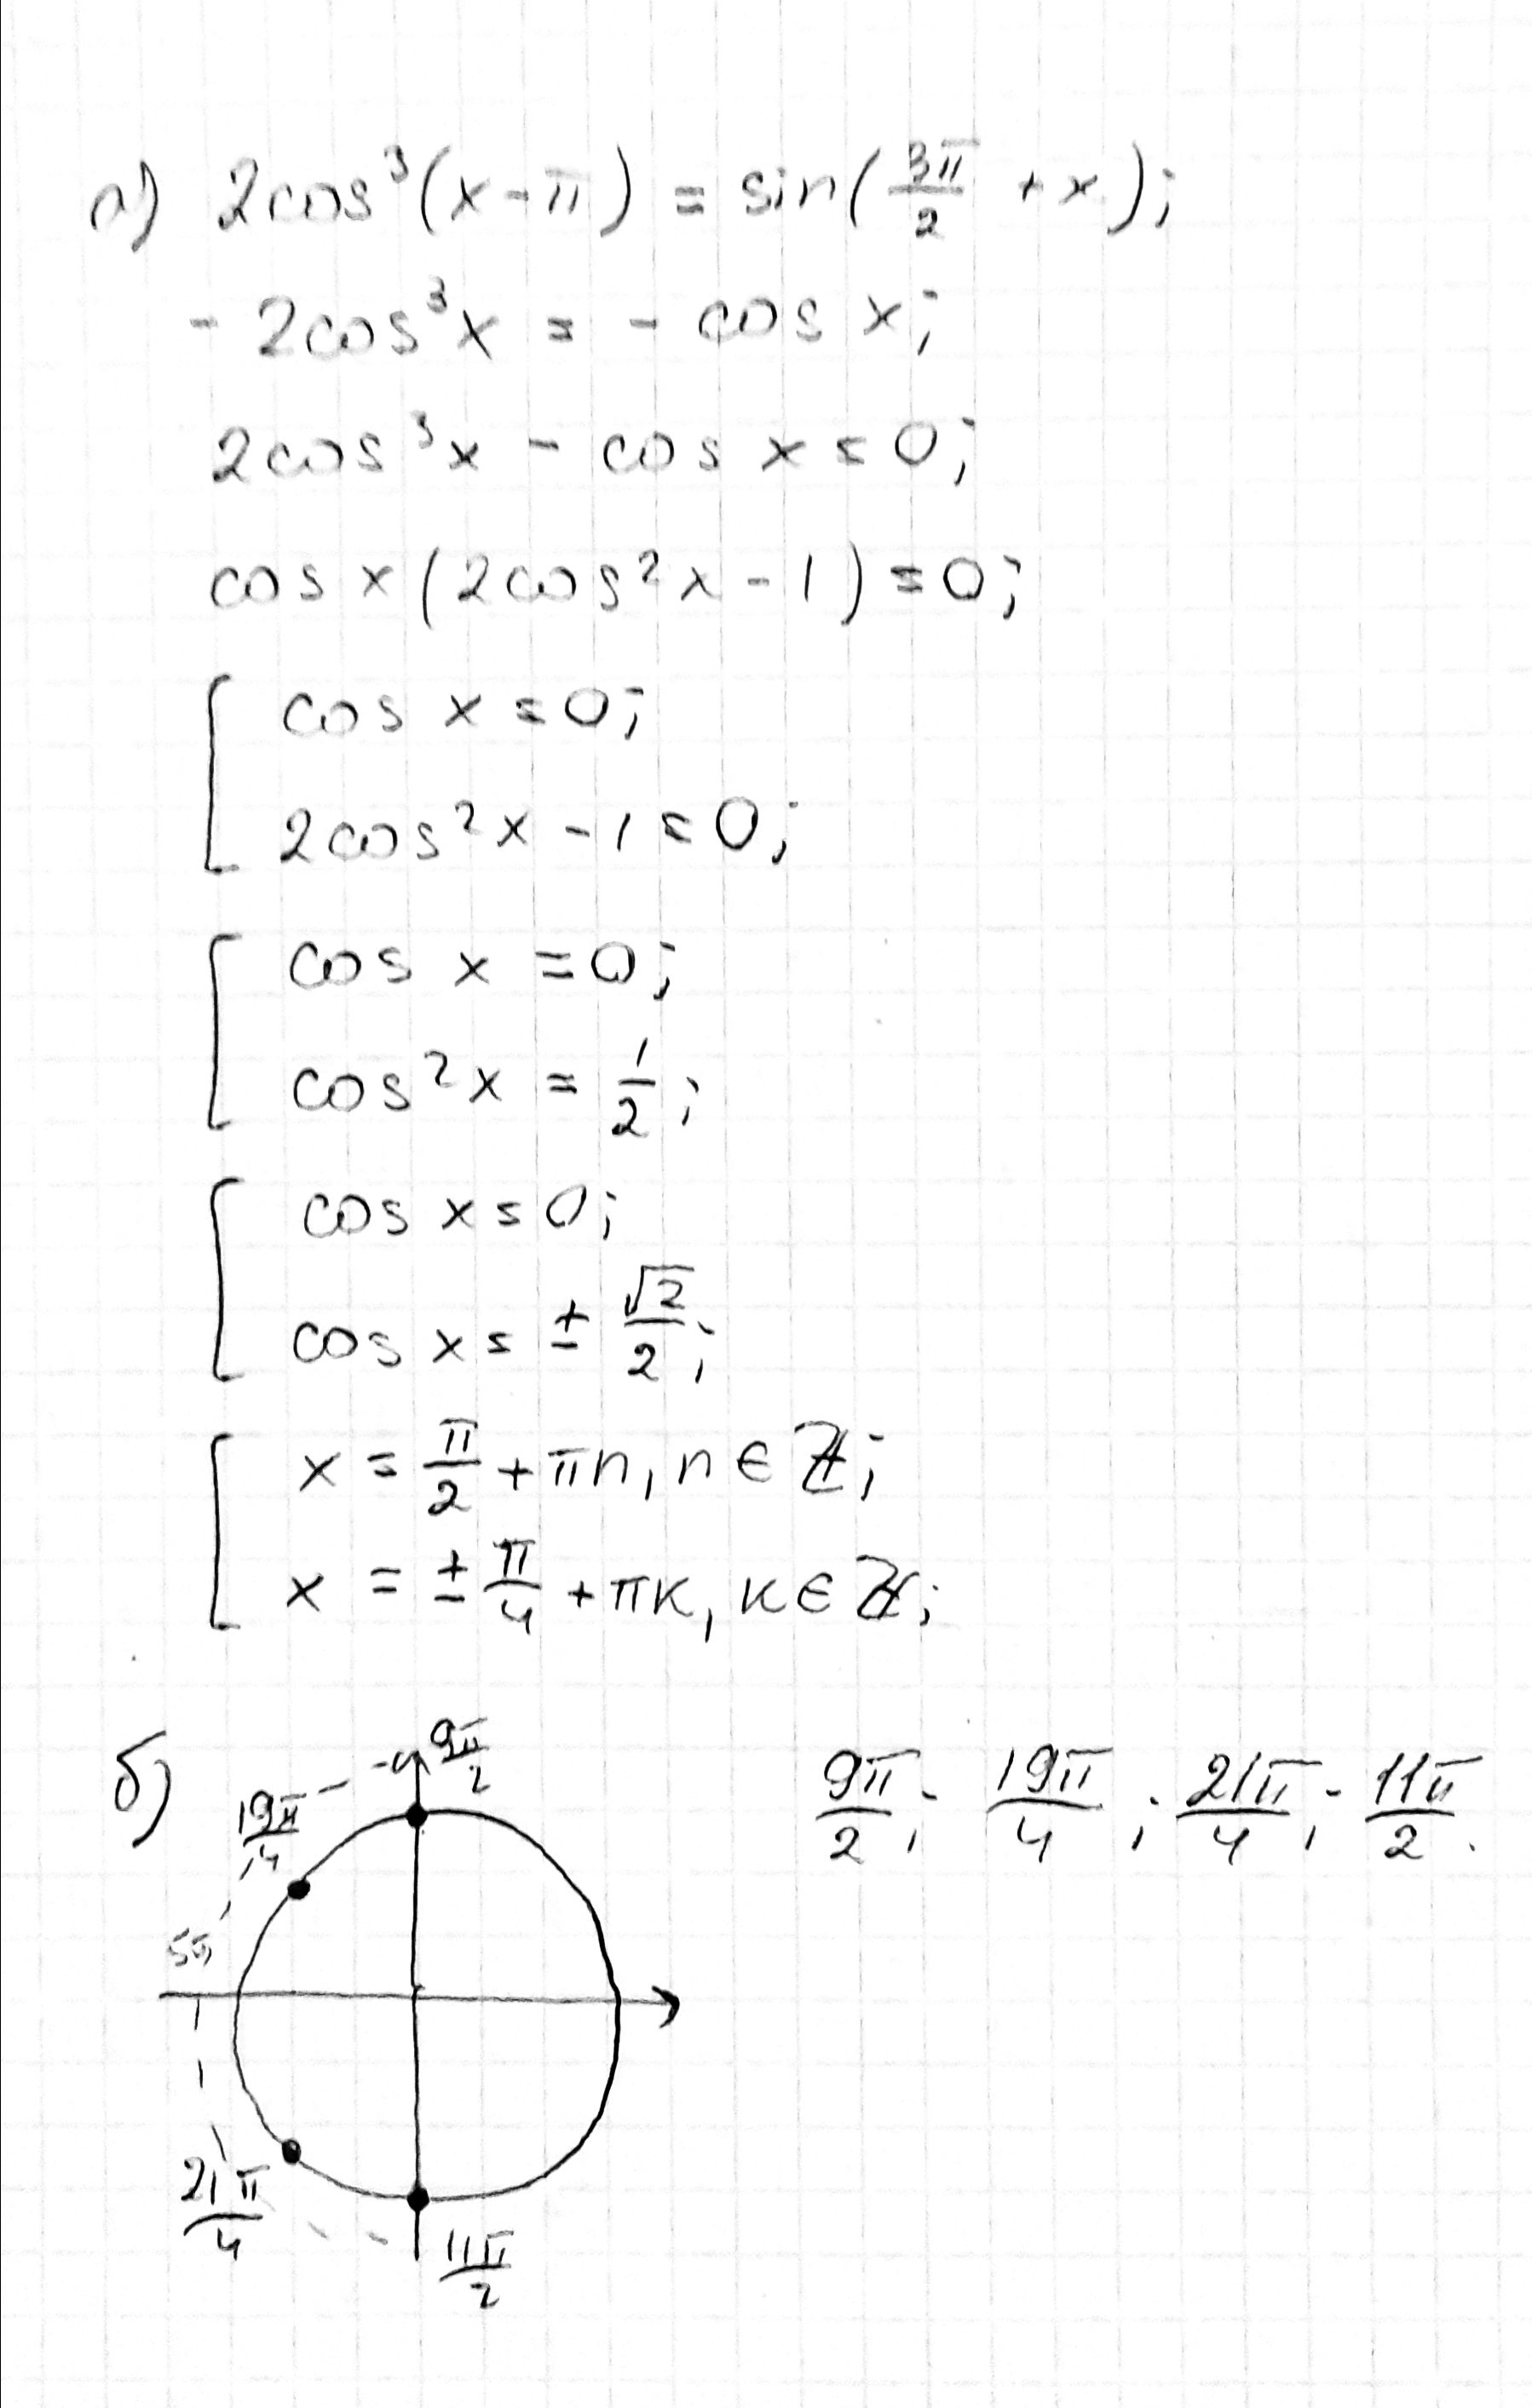 а) 2cos³(x-π) = sin(3π/2 + x);
-2cos³x = - cos x;
2cos³x - cos x = 0;
cos x(2cos²x - 1) = 0;
[ cos x = 0;
2cos²x - 1 = 0;
[ cos x = 0;
cos²x = 1/2;
[ cos x = 0;
cos x = ± √2/2;
[ x = π/2 + πn, n ∈ ℤ;
x = ± π/4 + πк, к ∈ ℤ;
б) 9π/2
19π/4
5π
21π/4
11π/2
9π/2; 19π/4; 21π/4; 11π/2.